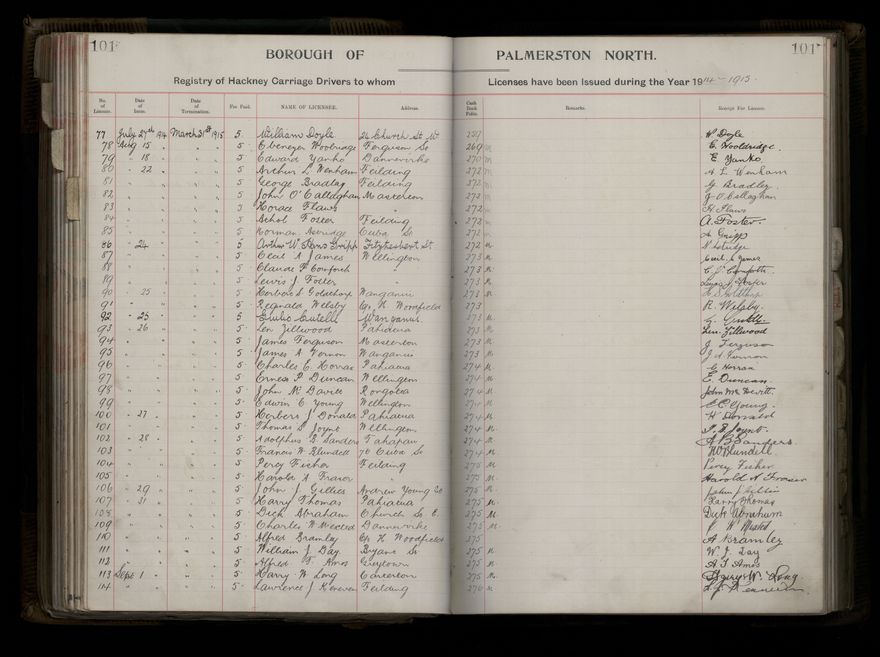 101
101
BOROUGH OF PALMERSTON NORTH.
Registry of Hackney Carriage Drivers to whom Licenses have been Issued during the Year 1914-1915.
No. of License. Date of Issue. Date of Termination. Fee Paid. NAME OF LICENSEE. Address. Cash Book Folio. Remarks. Receipt For License.
77 July 27th 1914 March 31st 1915 5 William Doyle 26 Church St W 259 W Doyle
78 Aug 15 " " 5 Ebenezer Ferguson St 269 E. Wooldridge
79 " 18 " " 5 Edward Yanko Dannevirke 270 E Yanko
80 " 22 " " 5 Archer L Wenham Feilding 272 A L Wenham
81 " " " " 5 George Bradley Feilding 272 G Bradley
82 " " " " 5 John O'Callaghan Masterton 272 J O'Callaghan
83 " " " " 5 Horace Flaws " 272 H Flaws
84 " " " " 5 Foster Feilding 272 A. Foster
85 " " " " 5 Norman Cuba St 272
86 " 24 " " 5 Arthur W Gripp Fitzherbert St 272
87 " " " " 5 Cecil A James Wellington 273 Cecil A James
88 " " " " 5 Claude F " 273
89 " " " " 5 Lewis J Foster " 273 Lewis J Foster
90 " 25 " " 5 Herbert S Wanganui 273
91 " " " " 5 Reginald Welsby Woodfield 273 R Welsby
92 " 25 " " 5 Wanganui 273
93 " 26 " " 5 Len Zillwood Pahiatua 273 Len Zillwood
94 " " " " 5 James Ferguson Masterton 273 J Ferguson
95 " " " " 5 James A Wanganui 273
96 " " " " 5 Charles E Pahiatua 274
97 " " " " 5 Ernest P Duncan Wellington 274 E. Duncan
98 " " " " 5 John Mc Davitt Rongotea 274
99 " " " " 5 Edwin C Young Wellington 274 E C Young
100 " 27 " " 5 Herbert J Donald Pahiatua 274 H Donald
101 " " " " 5 Thomas S Joynt Wellington 274 T. S. Joynt
102 " 28 " " 5 Adolphus B Sanders Tahapan 274 A B Sanders
103 " " " " 5 Francis W Blundell 70 Cuba St 274 W Blundell
104 " " " " 5 Percy Fisher Feilding 275 Percy Fisher
105 " " " " 5 Harold A Fraser " 275 Harold A Fraser
106 " 29 " " 5 John J Gillies Andrew Young St 275 John J Gillies
107 " 31 " " 5 Harry Thomas Pahiatua 275 Harry Thomas
108 " " " " 5 Dick Abraham Church St E 275 Dick Abraham
109 " " " " 5 Charles W Dannevirke 275
110 " " " " 5 Alfred Bramley Woodfield 275 A Bramley
111 " " " " 5 William J Day Bryant St 275 W. J. Day
112 " " " " 5 Alfred T. Amos 275 A T Amos
113 Sept 1 " " 5 Harry W Long Carterton 275 Harry W. Long
114 " " " " 5 Lawrence J Feilding 276